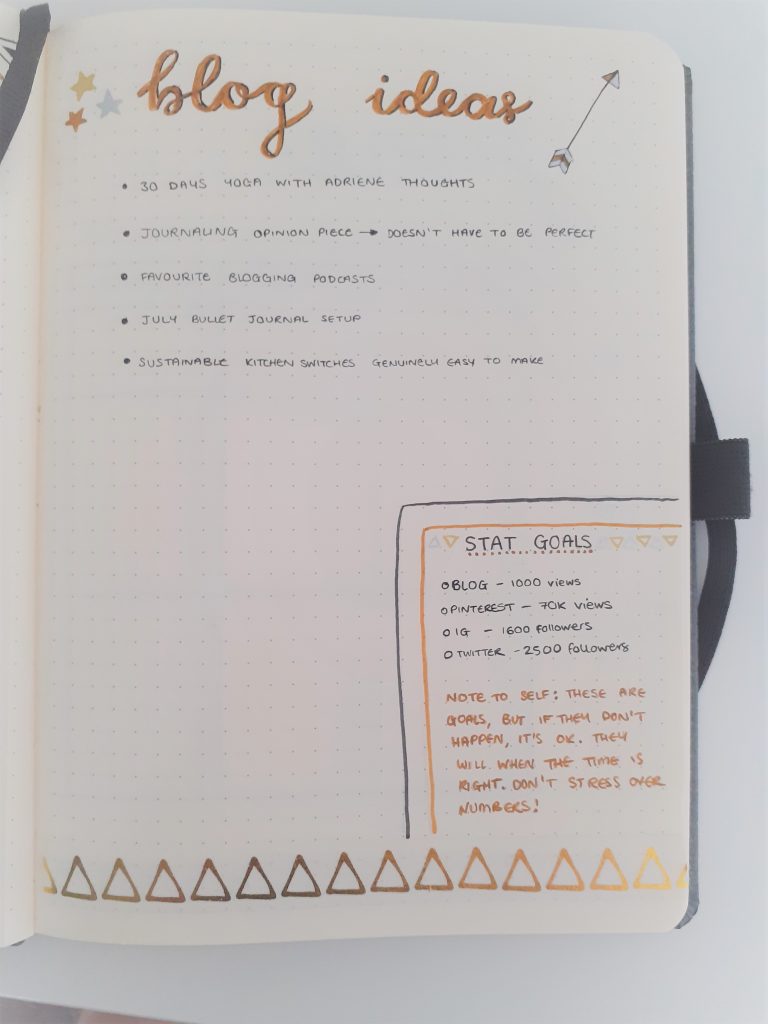 blog ideas
• 30 DAYS YOGA WITH ADRIENE THOUGHTS
• JOURNALING OPINION PIECE → DOESN'T HAVE TO BE PERFECT
• FAVOURITE BLOGGING PODCASTS
• JULY BULLET JOURNAL SETUP
• SUSTAINABLE KITCHEN SWITCHES GENUINELY EASY TO MAKE
STAT GOALS
o BLOG - 1000 views
o PINTEREST - 70K views
o IG - 1600 followers
o TWITTER - 2500 followers
NOTE TO SELF: THESE ARE
GOALS, BUT IF THEY DON'T
HAPPEN, IT'S OK. THEY
WILL WHEN THE TIME IS
RIGHT. DON'T STRESS OVER
NUMBERS!